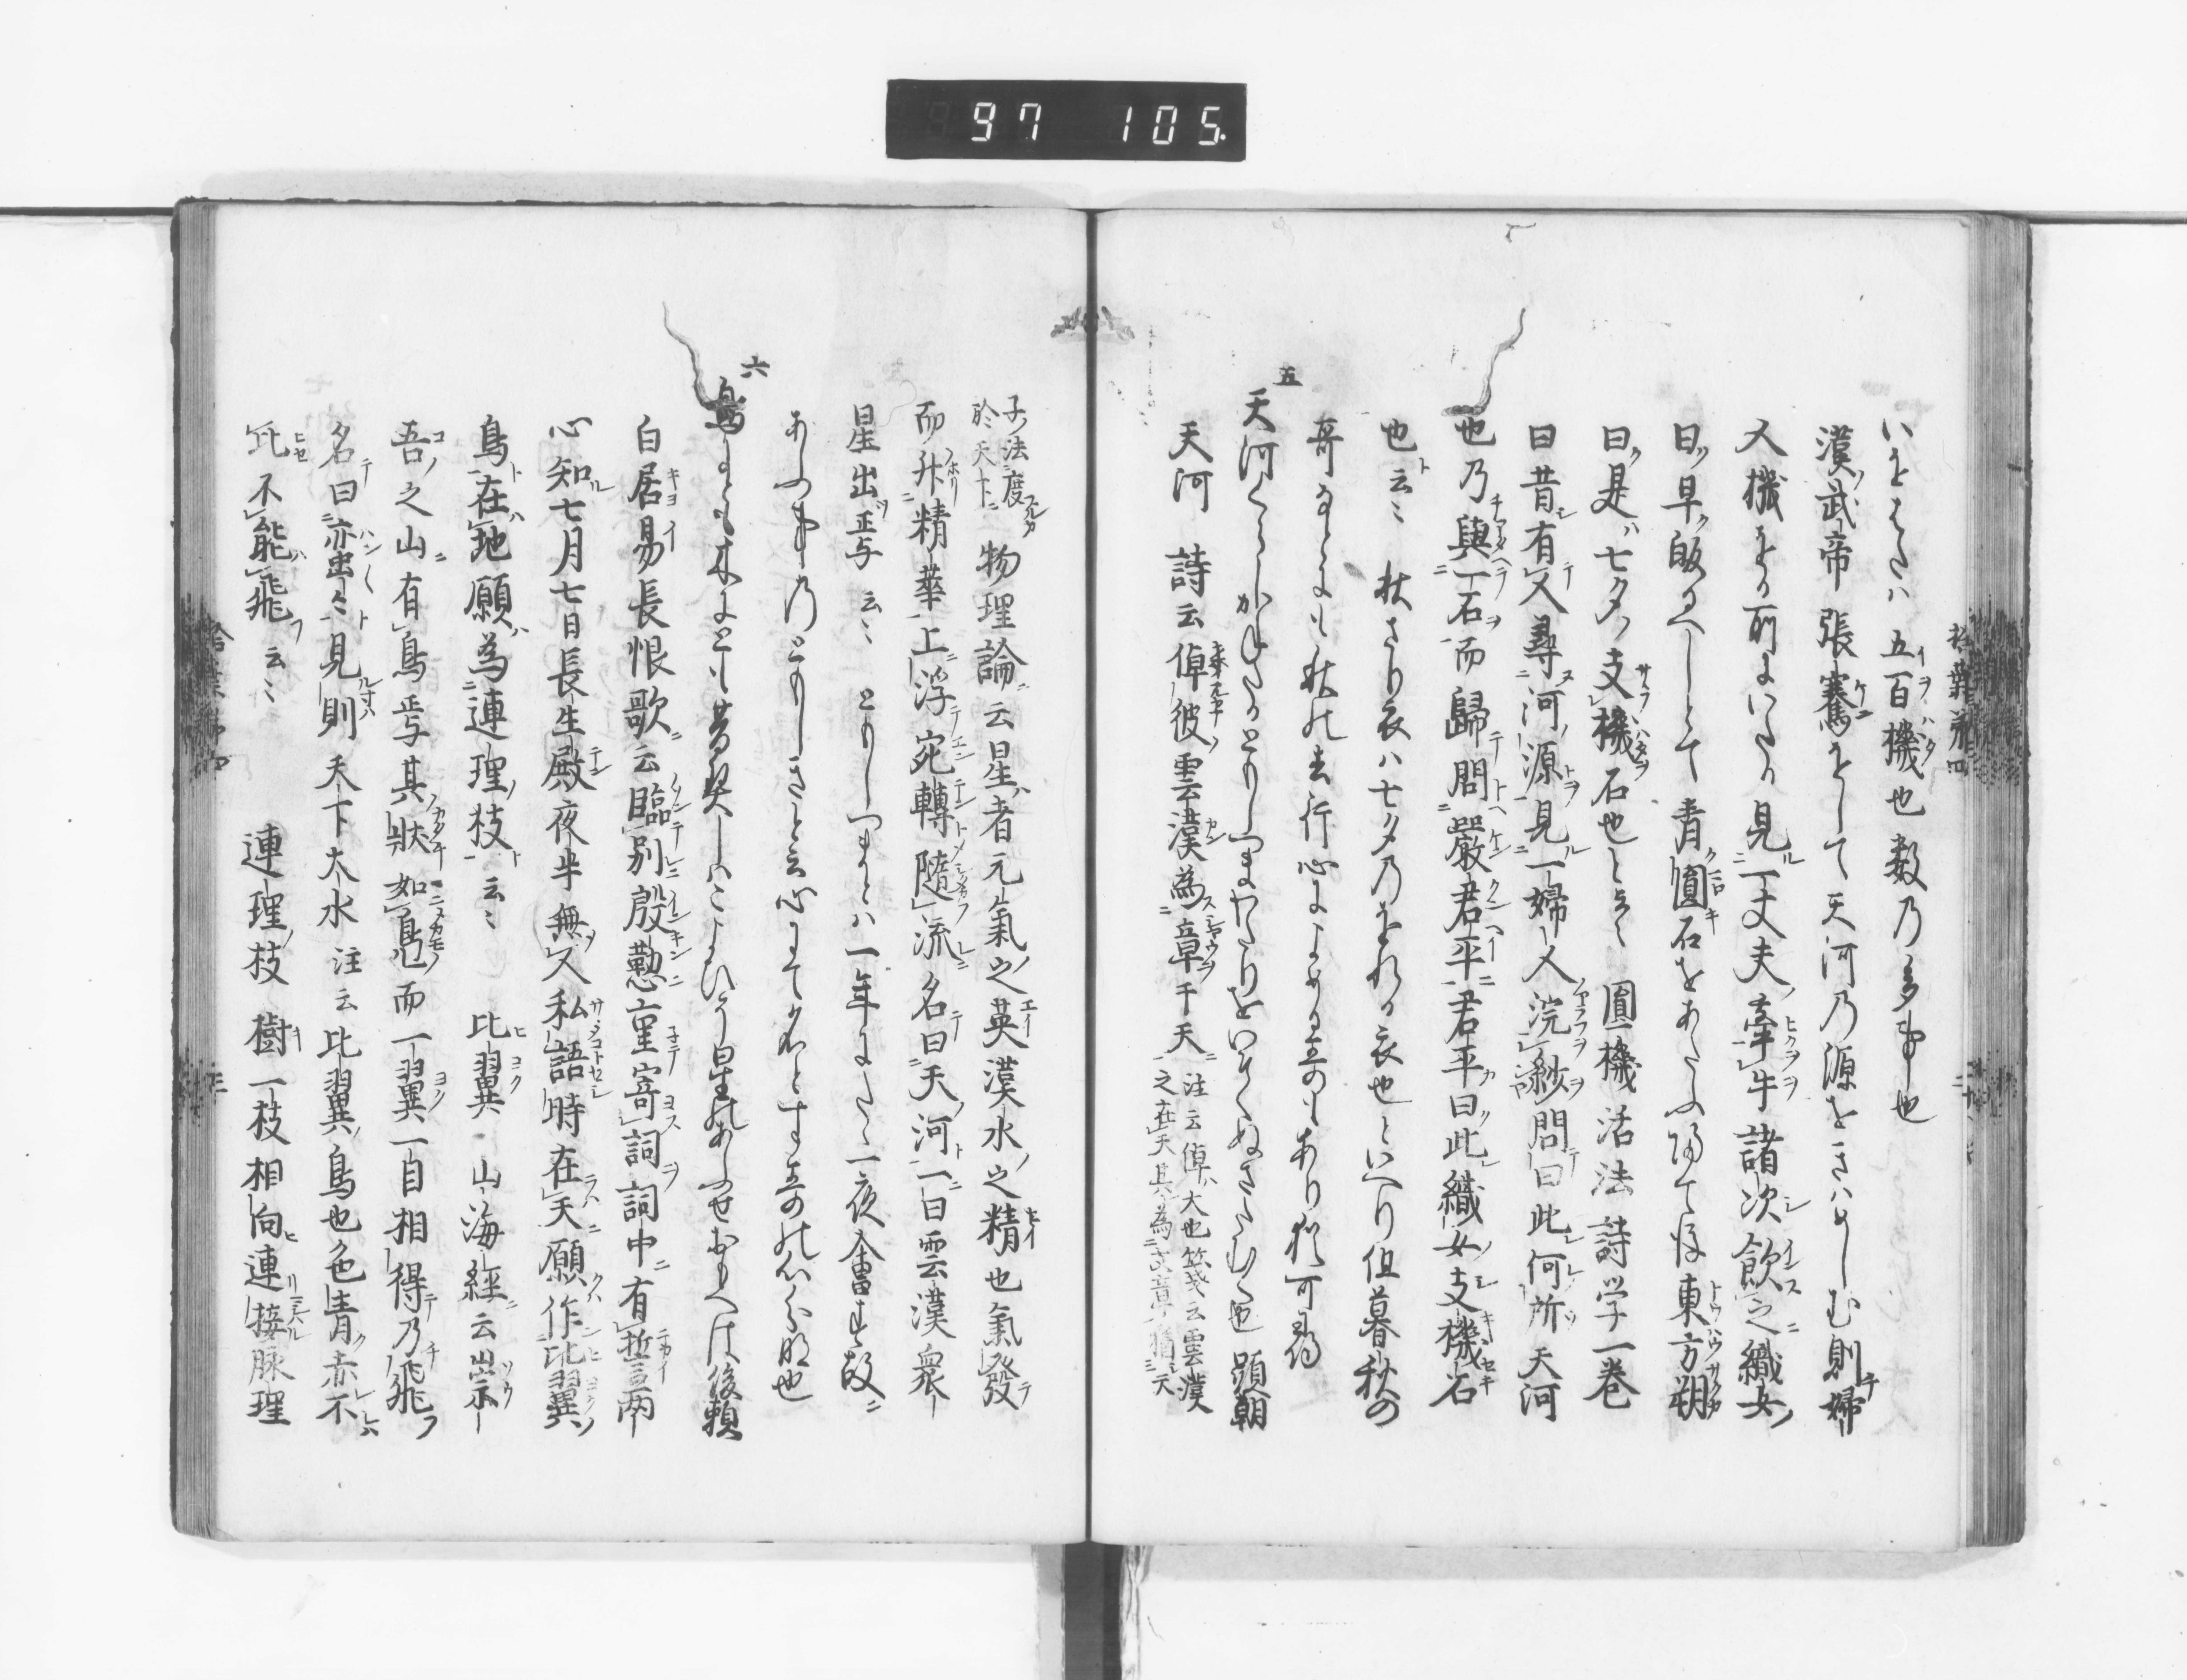 97 105.
いをはたハ 五百機也 数乃多事也
漢武帝張騫をして天河乃源をきハめしむ則婦
人機をる所にいたる見一丈夫牽牛諸次飲之織女
曰早皈るへしとて青圓石をあたふ帰て後東方朔
曰是七夕支機石也と云々 圓機活法詩学一巻
曰昔有人尋河源見一婦人浣紗問曰此何所天河
也乃與一石而歸問嚴君平君平曰此織女支機石
也云々 秋さり衣ハ七夕乃をれる衣也といへり但暮秋の
哥なとにも秋の去行心によめる哥もあり猶可尋
五
天河
顕朝
天河 詩云倬彼雲漢為章于天
注云倬大也箋云雲漢
之在天其為文章猶天
子法度
於天下
物理論云星者元氣之英漢水之精也氣發
而升精華上浮宛轉隨流名曰天河一曰雲漢衆
星出焉云々 とりしつまとハ一年にたゝ一夜会する故
あふ事乃とりしきと云心にて名とす哥の心分明也
六
鳥よとも木よとも昔契しハこよひそ星のあふせ
後頼
白居易長恨歌云臨別殷懃重寄詞詞中有誓両
心知七月七日長生殿夜半無人私語時在天願作比翼
鳥在地願為連理枝云々 比翼 山海経云崇
吾之山有鳥焉其狀如鳧而一翼一目相得乃飛
名曰蛮々見則天下大水 注云比翼鳥也色青赤不
比不能飛云々 連理枝 樹一枝相向連接脉理